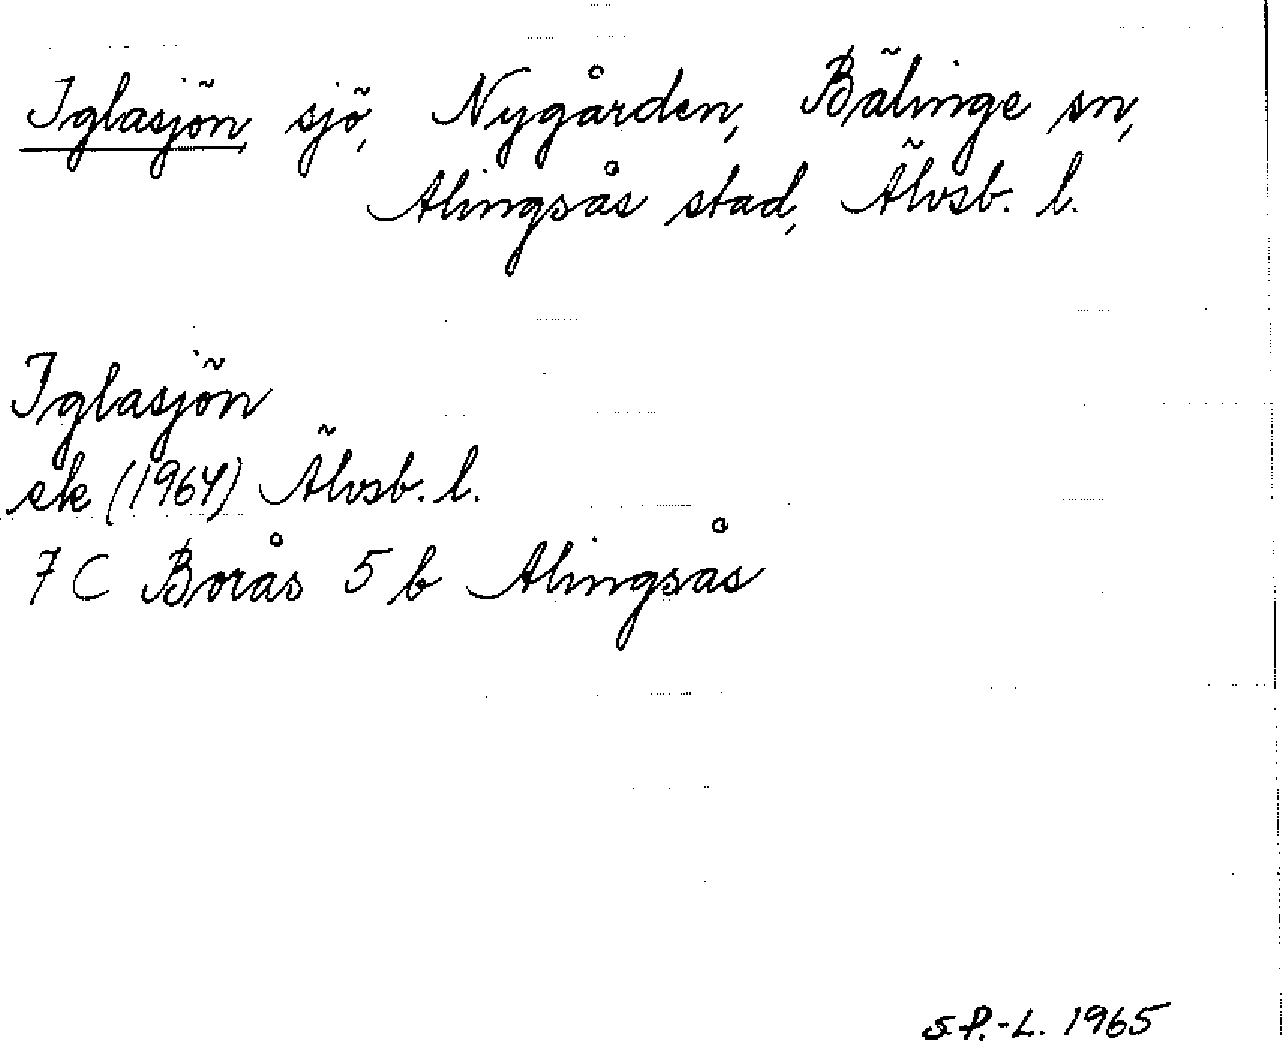 Iglasjön sjö, Nygården, Bälinge sn,
Alingsås stad, Älvsb. l.
Iglasjön
ek (1964) Älvsb. l.
7 C Borås 5 b Alingsås
S.P.-L. 1965